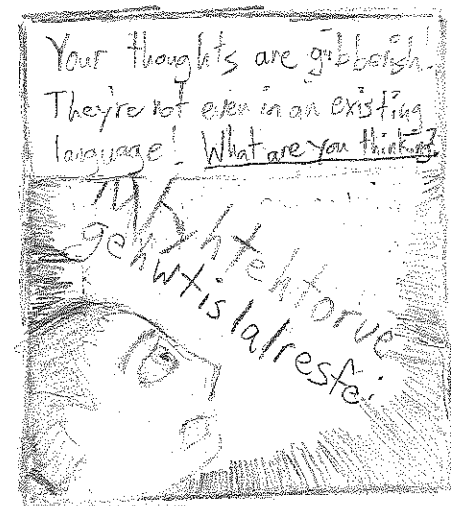 Your thoughts are gibberish!
They're not even in an existing
language! What are you thinking?
htehtorve
gehwtislalresfe.